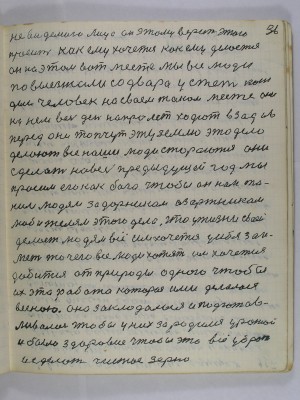 не видемого лица он этому верит этого 36
просит. как ему хочется как ему делается
он на этом вот месте мы все люди
повыезжали со двара у степ если
один человек на своём таком месте он
на нём весь ден напролет ходит взад и в
перед они топчут эту землю это дело
делают все наши люди стораются они
сделать на весь предыдущей год мы
просим его как бога чтобы он нам та-
ким людям задорникам азартникам
любителям этого дела. что у жизни своей
делает людям всё им хочется у себя зани-
мет то чего все люди хотят им хочется
добится от природы одного чтоб бы
их эта работа которая ими делалася
весною. она закладалася и подготав-
ливалася чтобы у них зародился урожай
и было здоровие чтобы это всё убрать
и сделать чистое зерно